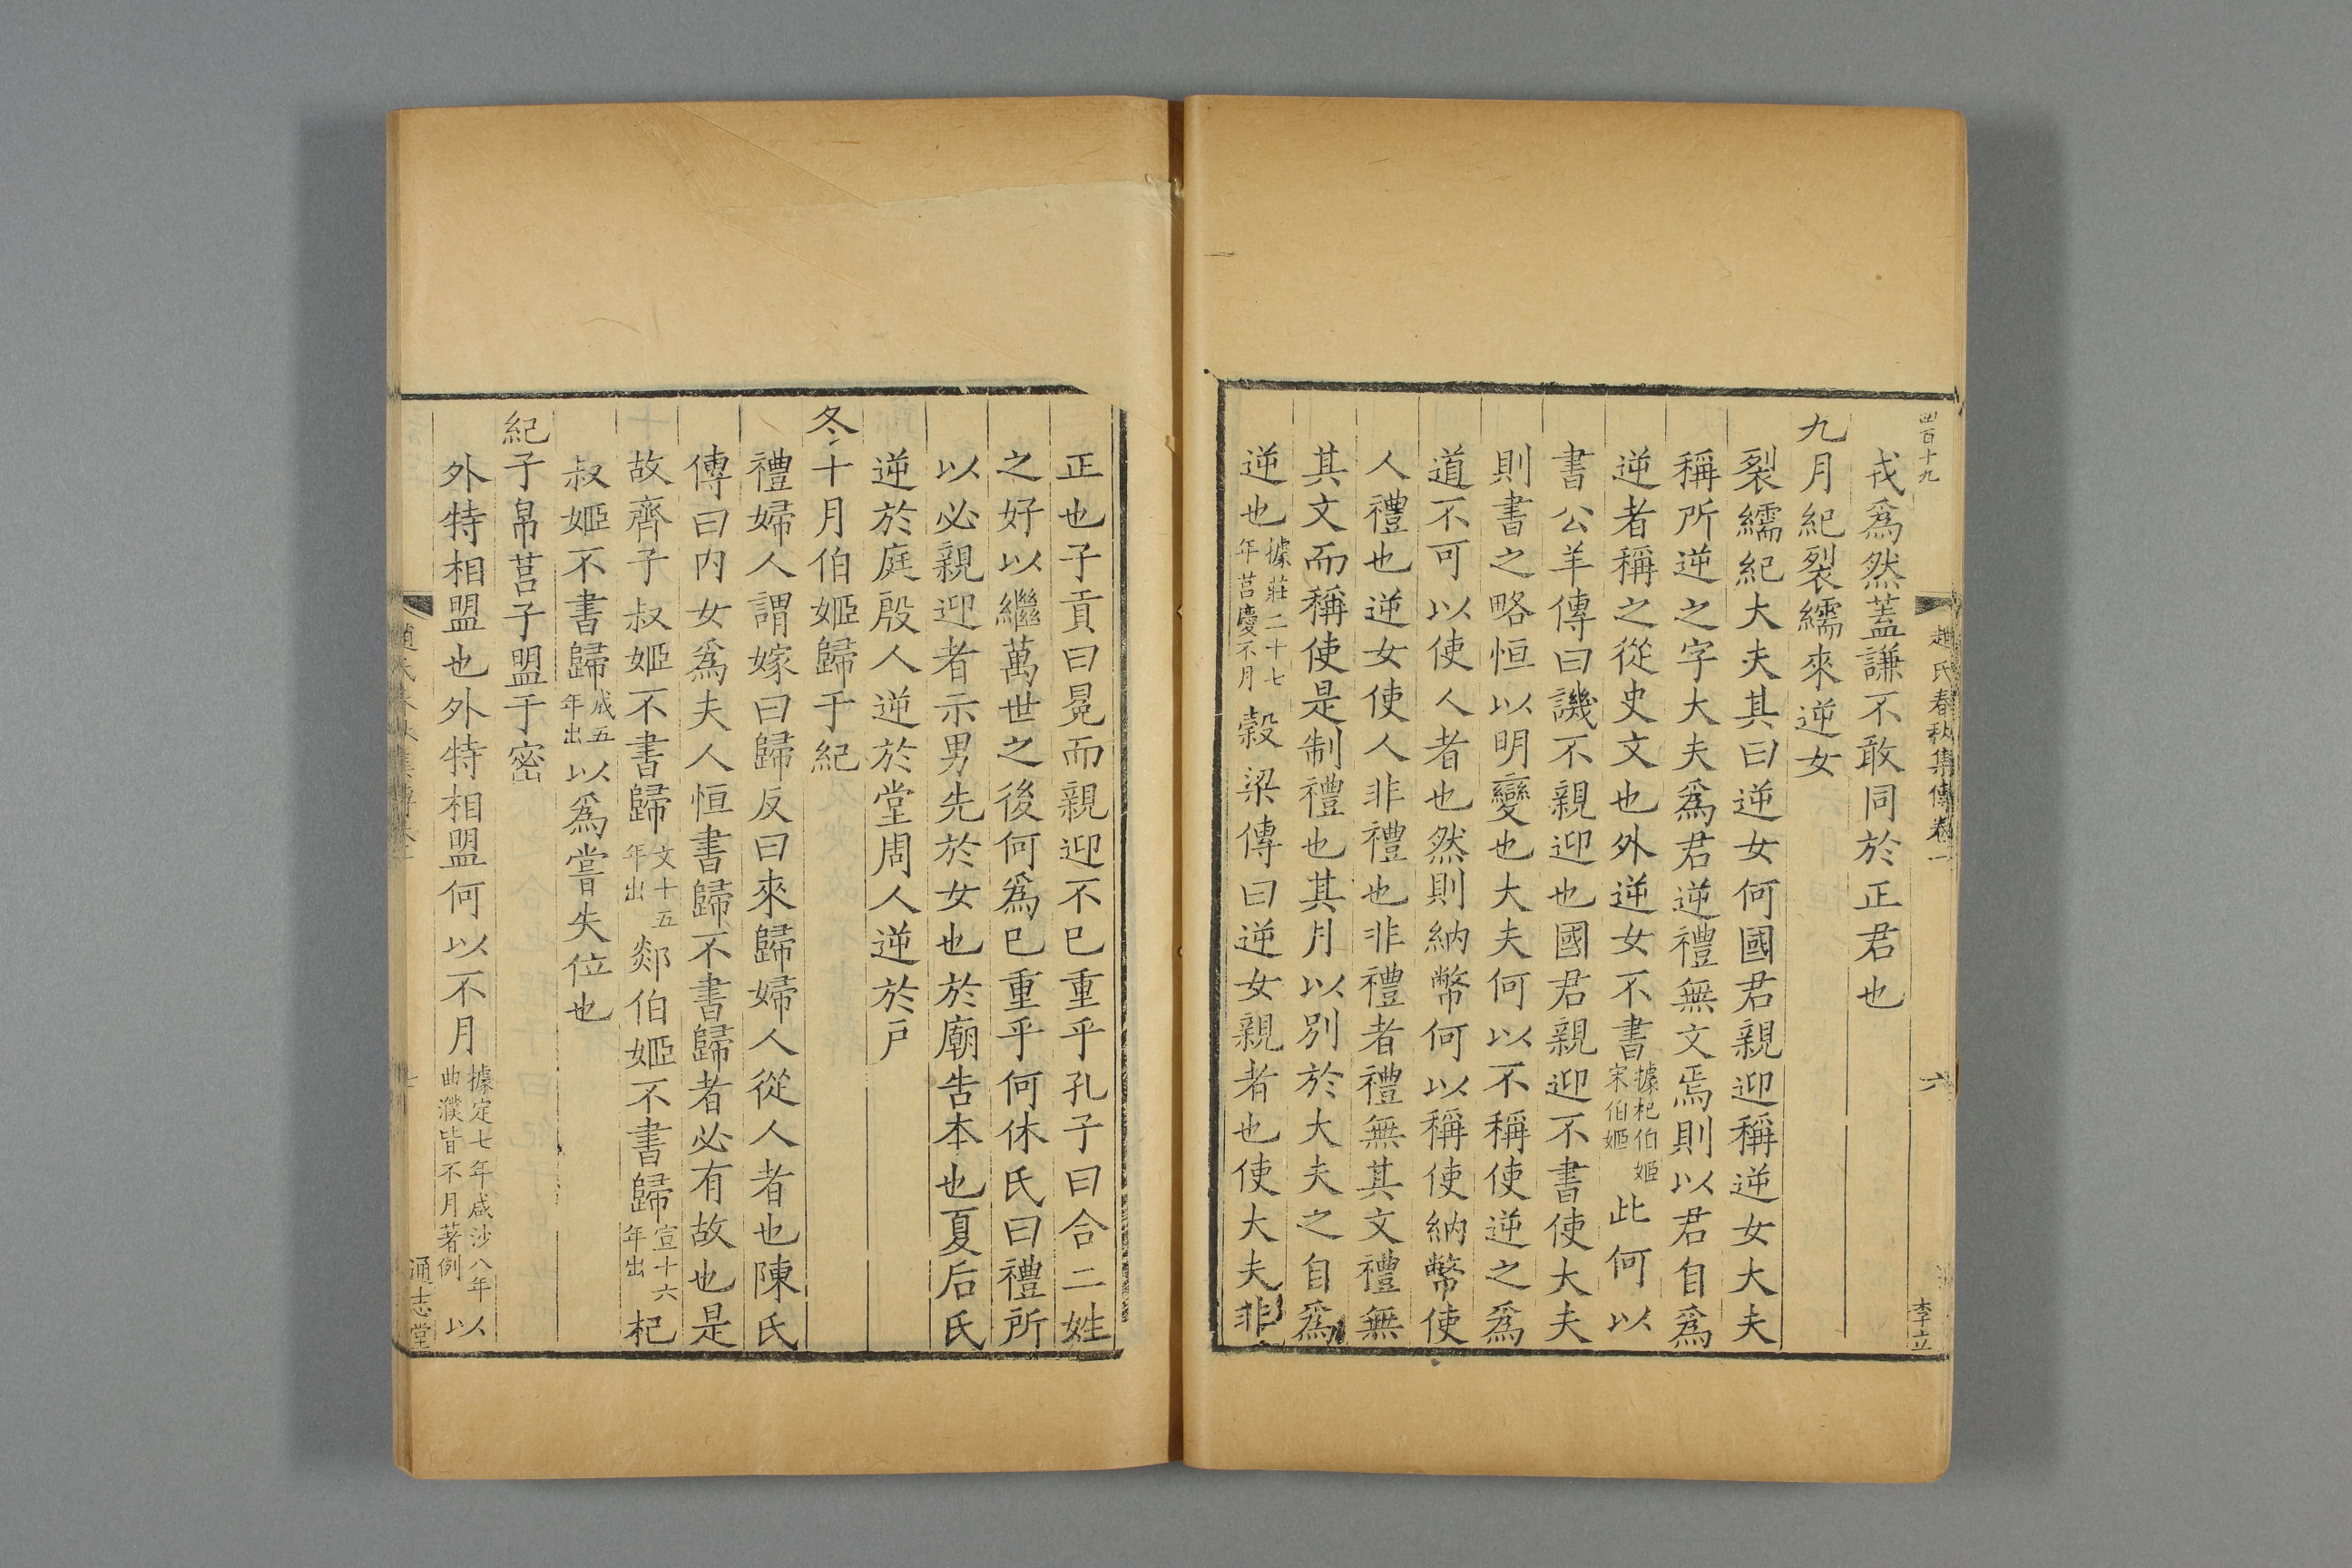 四百十九
趙氏春秋集傳卷一
六
李立
戎爲然蓋謙不敢同於正君也
九月紀裂繻來逆女
裂繻紀大夫其曰逆女何國君親迎稱逆女大夫
稱所逆之字大夫爲君逆禮無文焉則以君自爲
逆者稱之從史文也外逆女不書據杞伯姬宋伯姬此何以
書公羊傳曰譏不親迎也國君親迎不書使大夫
則書之略恒以明變也大夫何以不稱使逆之爲
道不可以使人者也然則納幣何以稱使納幣使
人禮也逆女使人非禮也非禮者禮無其文禮無
其文而稱使是制禮也其月以別於大夫之自爲
逆也據莊二十七年莒慶不月穀梁傳曰逆女親者也使大夫非
正也子貢曰冕而親迎不已重乎孔子曰合二姓
之好以繼萬世之後何爲已重乎何休氏曰禮所
以必親迎者示男先於女也於廟告本也夏后氏
逆於庭殷人逆於堂周人逆於戶
冬十月伯姬歸于紀
禮婦人謂嫁曰歸反曰來歸婦人從人者也陳氏
傳曰内女爲夫人恒書歸不書歸者必有故也是
故齊子叔姬不書歸文十五年出郯伯姬不書歸宣十六年出杞
叔姬不書歸成五年出以爲嘗失位也
紀子帛莒子盟于密
外特相盟也外特相盟何以不月據定七年咸沙八年曲濮皆不月著例以
七
通志堂